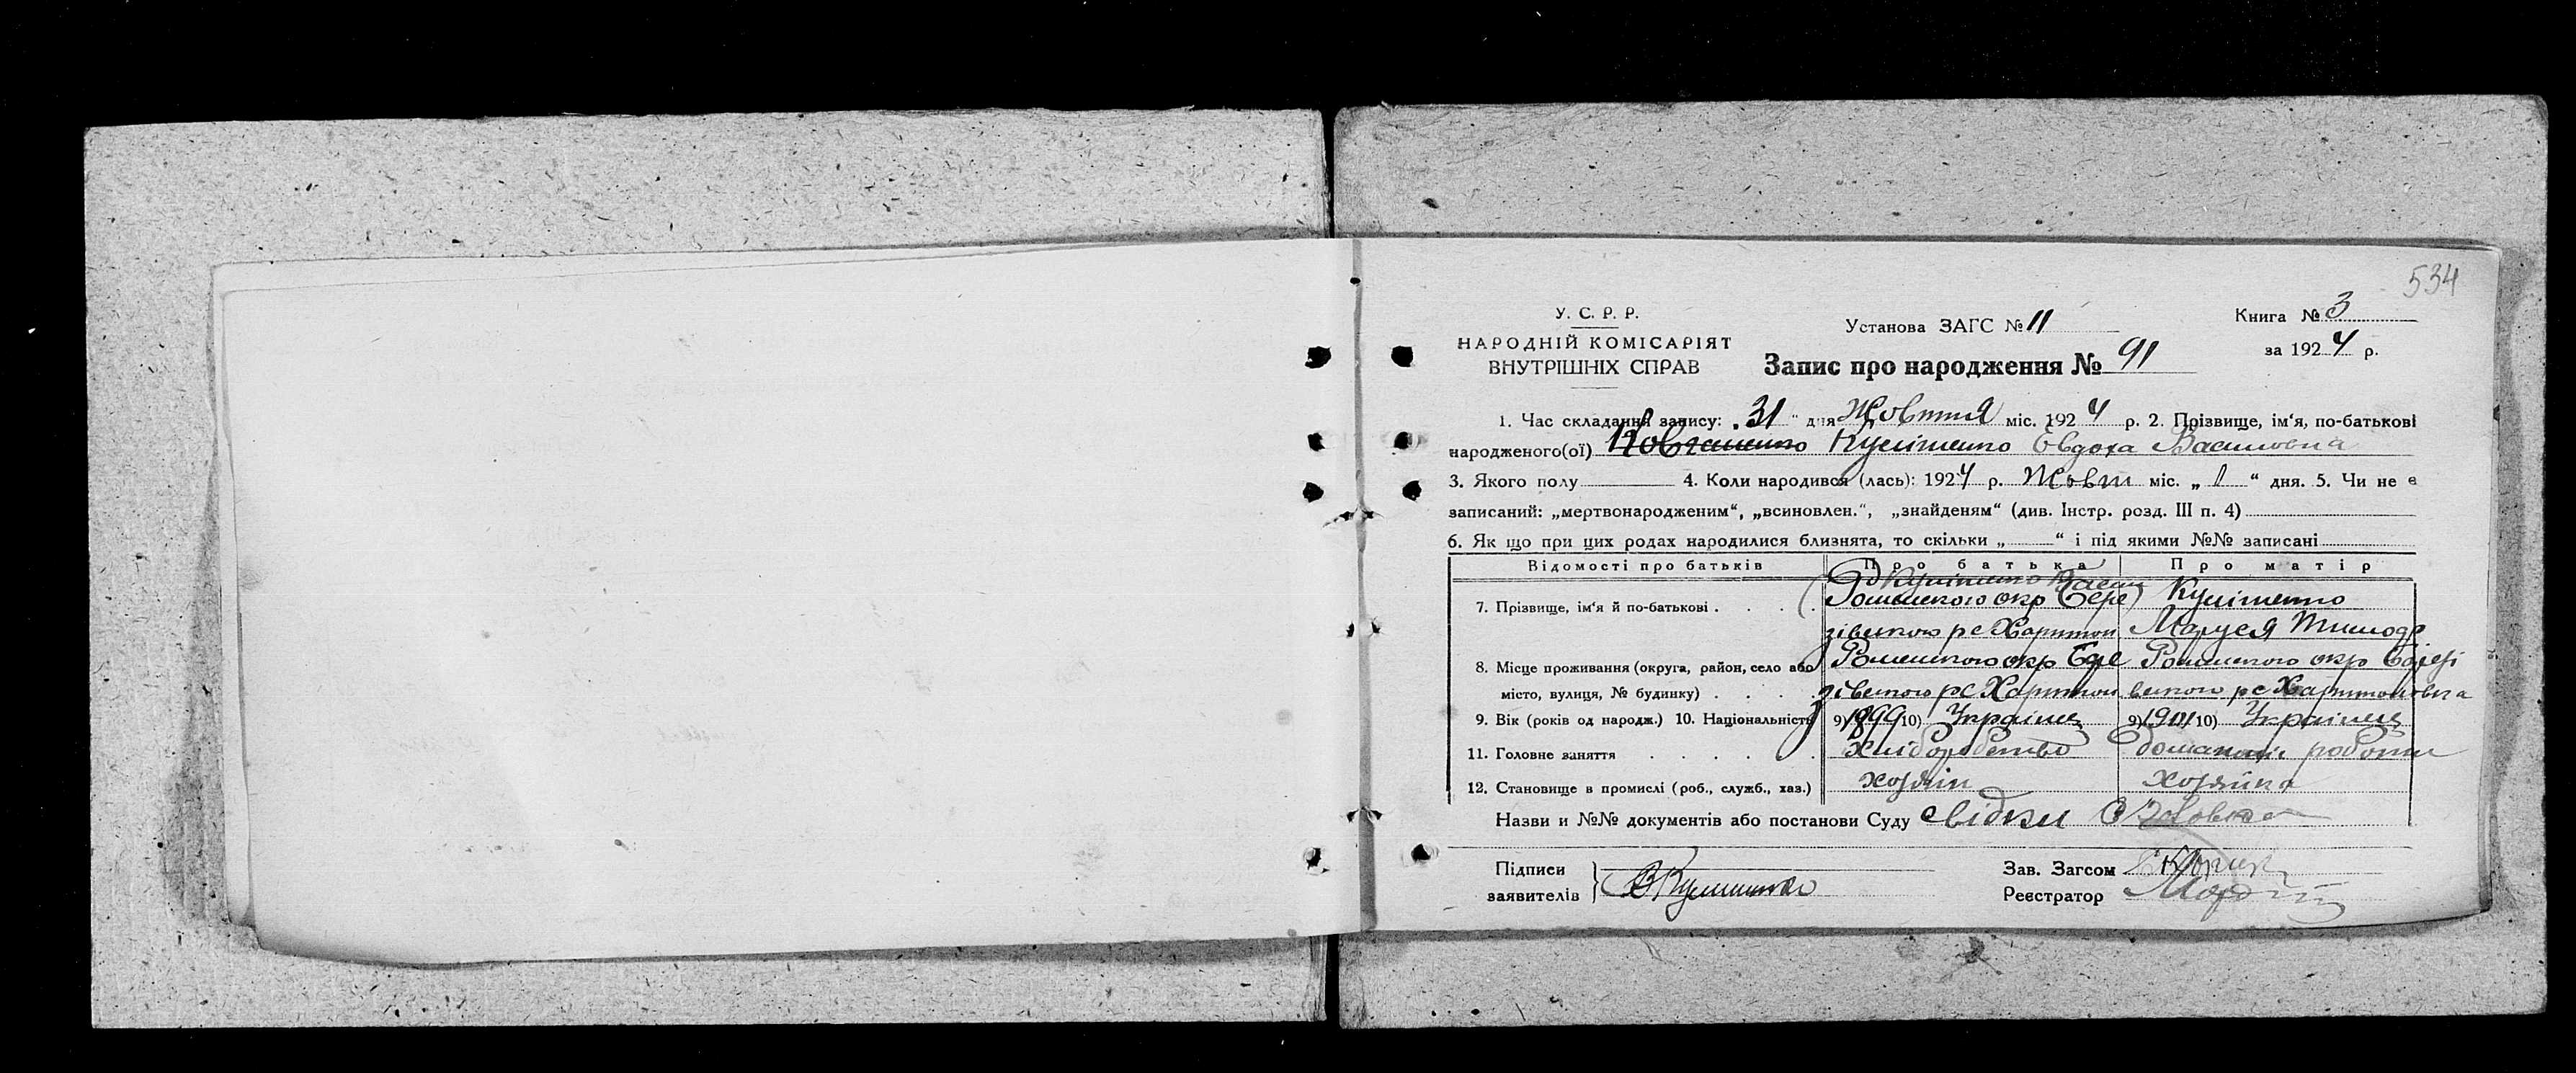 534
У. С. Р. Р.
НАРОДНІЙ КОМІСАРІЯТ
ВНУТРІШНІХ СПРАВ
Установа ЗАГС № 11
Запис про народження № 91
Книга № 3
за 1924 р.
1. Час складання запису: „31“ дня Жовтня міс. 1924 р. 2. Прізвище, ім‘я, по-батькові
народженого(ої) Кулішенко Овдоха Василовна
3. Якого полу 4. Коли народився (лась): 1924 р. Жовт міс. „1“ дня. 5. Чи не є
записаний: „мертвонародженим“, „всиновлен.“, „знайденям“ (див. Інстр. розд. III п. 4)
6. Як що при цих родах народилися близнята, то скільки „ “ і під якими №№ записані
Відомості про батьків Про батька Про матір
7. Прізвище, ім‘я й по-батькові Кулішенко Васил Кулішенко
Роменского окр Бере
зівского рс Харитон Маруся Тимоф
8. Місце проживання (округа, район, село або Роменского окр Бере Роменского окр Березі
місто, вулиця, № будинку) зівского рс Харитон вского рс Харитоновка
9. Вік (років од народж.) 10. Національність 9) 1899 10) Українец 9) 1901 10) Українец
11. Головне заняття Хліборобство домашні роботи
12. Становище в промислі (роб., служб., хаз.) хозяін хозяйка
Назви и №№ документів або постанови Суду свідки
Підписи
заявителів В Кулишенко
Зав. Загсом
Реєстратор